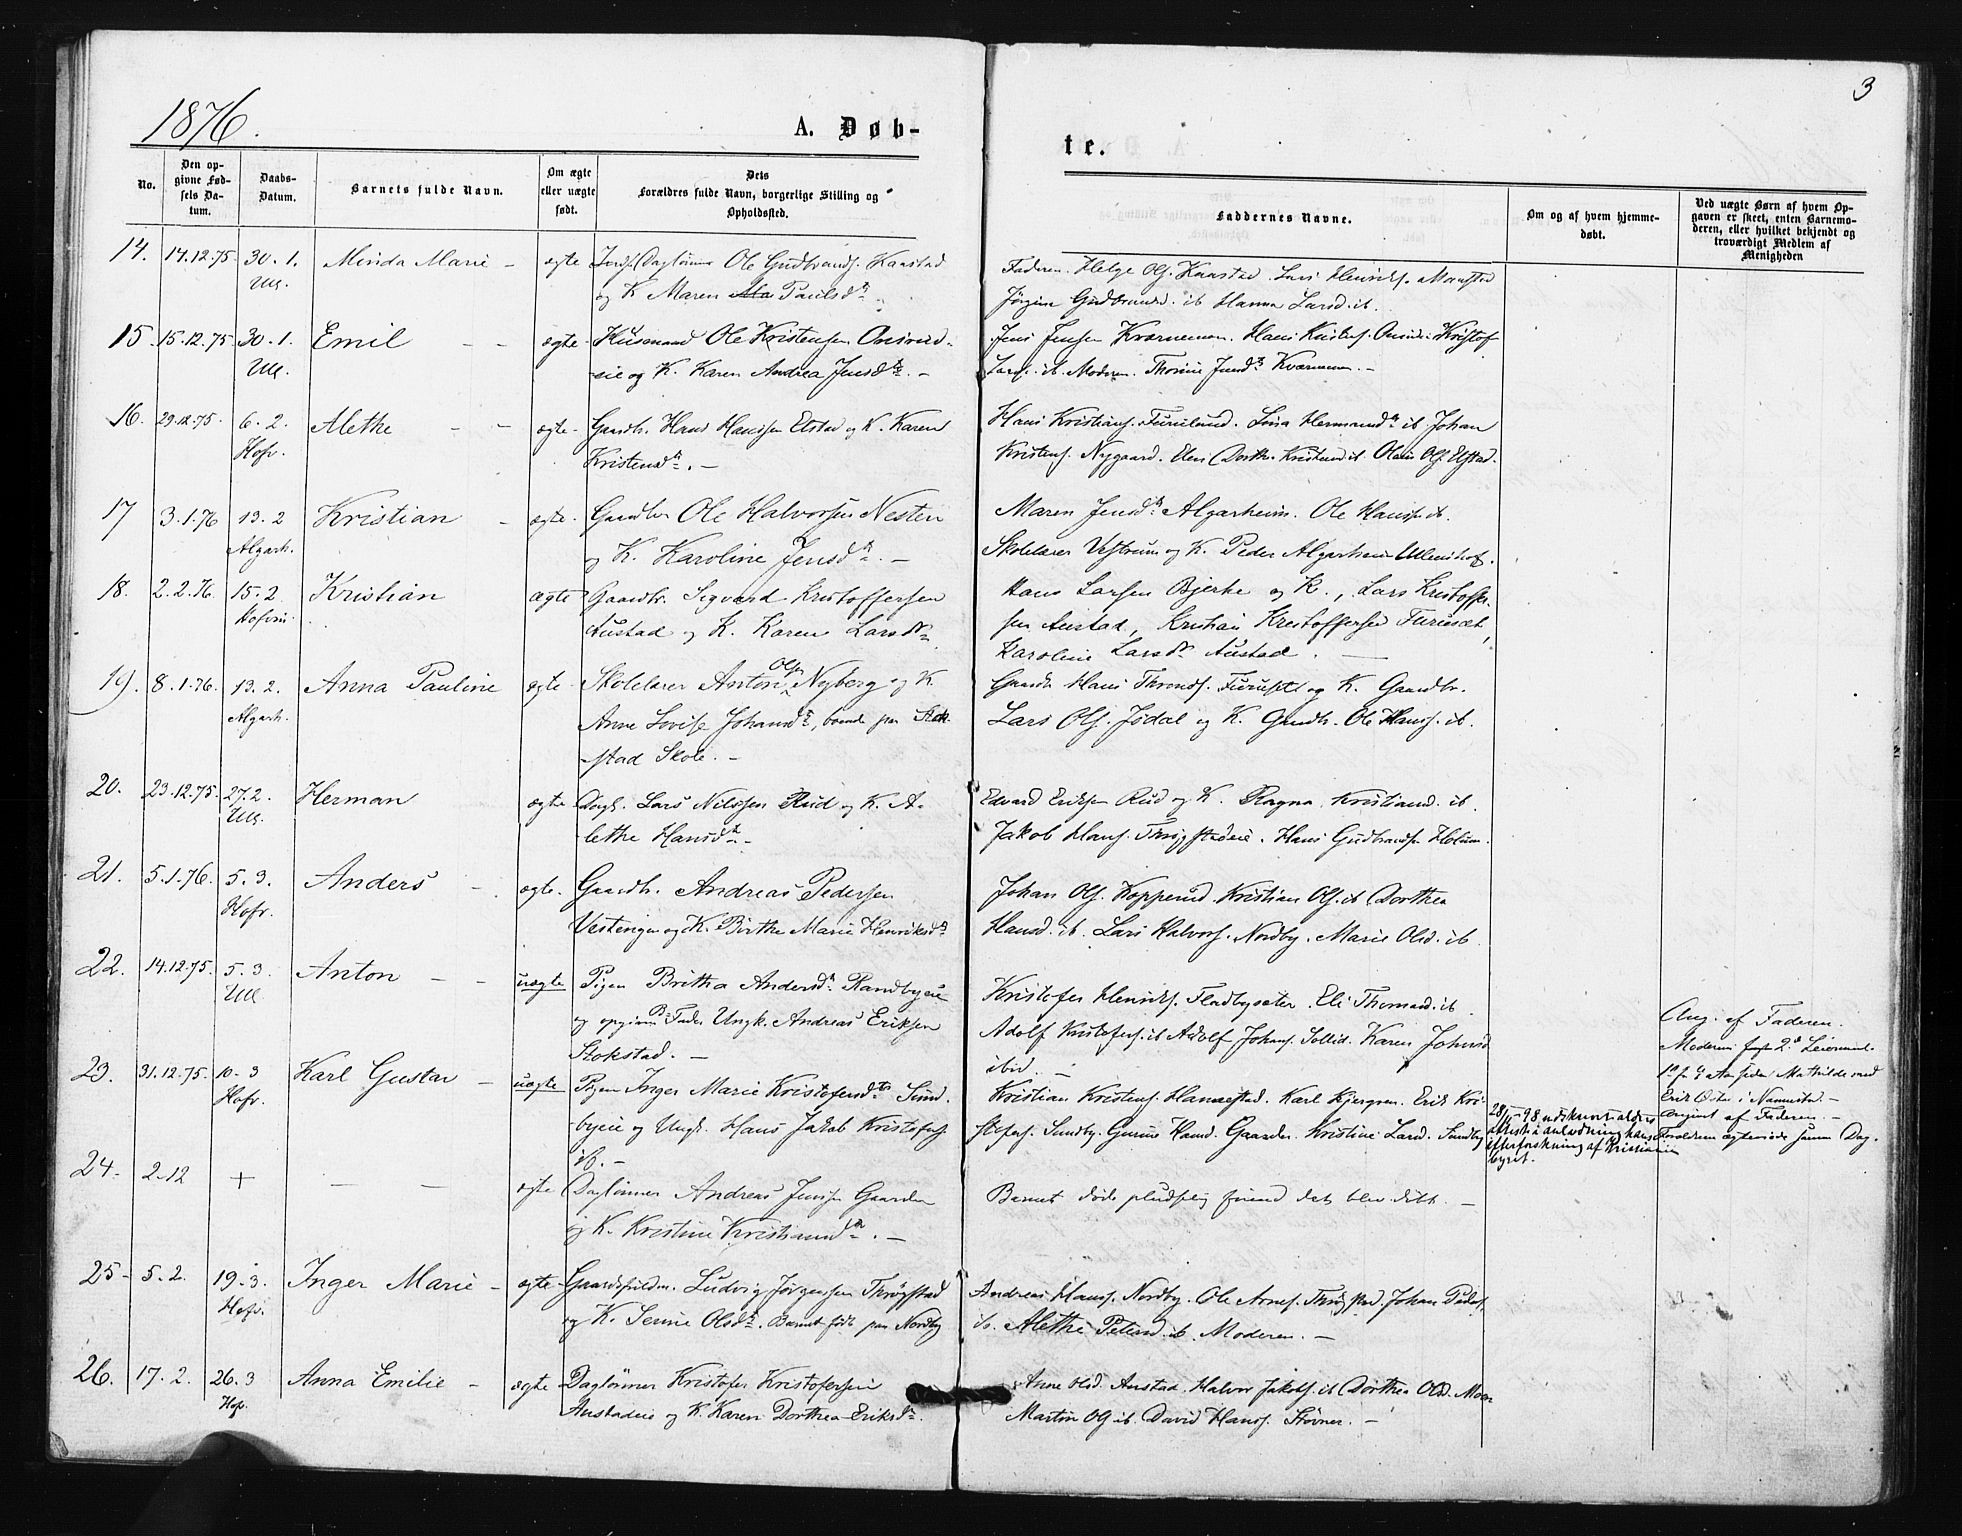 1876.
3
A. Døb-
te.
No.
Den opgivne Fødsels Datum.
Daabs-Datum.
Barnets fulde Navn.
Om ægte eller uægte født.
Dets
Forældres fulde Navn, borgerlige Stilling og
Opholdssted.
Faddernes Navne.
Om og af hvem hjemmedøbt.
Ved uægte Børn af hvem Opgaven er skeet, enten Barnemoderen, eller hvilket bekjendt og troværdigt Medlem af Menigheden
14. 14.12.75 30.1. Ull. Minda Marie - ægte
Daglønner Ole Gudbrands. Kaastad
og K. Maren Paulsdtr.
Faderen. Helge Ols. Kaastad. Lars Henriks.
Jørgen Gudbrands. ib Hanna Larsd. ib.
15. 15.12.75 30.1. Ull. Emil - - ægte
Husmand Ole Kristensen Onsrud-
eie og K. Karen Andrea Jensdtr. -
Jens Jensen Kværnemoen. Hans Kristens. Onsrud. Kristof
Lars. ib. Moderen. Thorine Jensdtr Kværnemoen. -
16. 29.12.75. 6.2. Hofv. Alethe - - ægte-
Gaardb. Hans Hansen Elstad og K. Karen
Kristensdtr. -
Hans Kristians. Furulund. Lina Hermandtr ib. Johan
Kristens. Nygaard. Elen Dorth. Kristensd. ib. Olaus Ols. Elstad.
17 3.1.76 13.2 Algarh. Kristian - ægte-
Gaardbr Ole Halvorsen Nesten
og K. Karoline Jensdtr. -
Maren Jensdtr Algarheim. Ole Hanss. ib.
Skolelærer Vestrum og K. Peder Algarheim Ullenshof.
18. 2.2.76. 15.2 Hofvin. Kristian ægte
Gaardbr. Sigvard Kristoffersen
Austad og K. Karen Larsdtr
Hans Larsen Bjerke og K., Lars Kristoffer-
sen Austad, Kristian Kristoffersen Furuset,
Karoline Larsdtr Austad. -
19. 8.1.76. 13.2. Algarh. Anna Pauline ægte-
Skolelærer Anton Ols. Nyberg og K.
Anne Lovise Johansdtr, boende paa Stok-
stad Skole. -
Gaardbr Hans Thronds. Furuset og K. Gaardbr.
Lars Ols. Jødal og K. Gaardb. Ole Hanss. ib.
20. 23.12.75. 27.2. Ull. Herman ægte-
Dagl. Lars Nilssen Rud og K. A-
lethe Hansdtr -
Edvard Eriksen Rud og K. Ragna Kristiansd. ib.
Jakob Hans. Thrøgstadeie. Hans Gudbrands. Holum.
21. 5.1.76. 5.3. Hofv. Anders - ægte.
Gaardb. Andreas Pedersen
Vestengen og K. Birthe Marie Henriksdtr
Johan Ols. Kopperud. Kristian Ols. ib Dorthea
Hansd. ib. Lars Halvors. Nordby. Marie Olsd. ib
22. 14.12.75. 5.3. Ull Anton - - uægte
Pigen Brithe Andersdtr. Randbyeie
og opgiven B. Fader Ungk. Andreas Eriksen
Stokstad. -
Kristofer Henriks. Fladbyseter. Eli Thomasd. ib.
Adolf Kristofers. ib Adolf Johans. Sollid. Karen Johansd
ibid. -
Ang. af Faderen.
Moderens første 2d Leiermaal.
1ste for 4 Aar siden Mathilde med
Erik Østen i Nannestad. -
23. 31.12.75. 10.3 Hofv. Karl Gustav - uægte
Pigen Inger Marie Kristofersdtr Sund-
byeie og Ungk. Hans Jakob Kristofers.
ib. -
Kristian Kristens. Hammerstad. Karl Bjergren. Erik Kri-
stofers. Sundby. Gurine Hansd. Gaarder. Kristine Larsd. Sundby
28/5-98 udskrevet alders
attest i anledning hans
efterforskning af Kristiania
byret.
angivet af Faderen. -
Forældrene ægteviede samme Dag.
24- 2.12 + - - ægte
Daglønner Andreas Jenssen Gaarder
og K. Kristine Kristiansdtr. -
Barnet døde pludselig førend det blev døbt. -
25- 5.2. 19.3. Hofv. Inger Marie - ægte-
Gaardsfuldm. Ludvig Jørgensen Thrøgstad
og K. Serine Olsdtr. Barnet født paa Nordby
Andreas Hans. Nordby. Ole Arnes. Thrøgstad. Johan Peders.
ib. Alethe Petersd. ib. Moderen. -
26. 17.2. 26.3 Hof. Anna Emilie - ægte
Daglønner Kristofer Kristofersen
Austadeie og K. Karen Dorthea Eriksdtr.
Anne Olsd. Austad. Halvor Jakobs. ib Dorthea Olsd. Moen
Martin Ols ib. David Hanss. Støvner. -